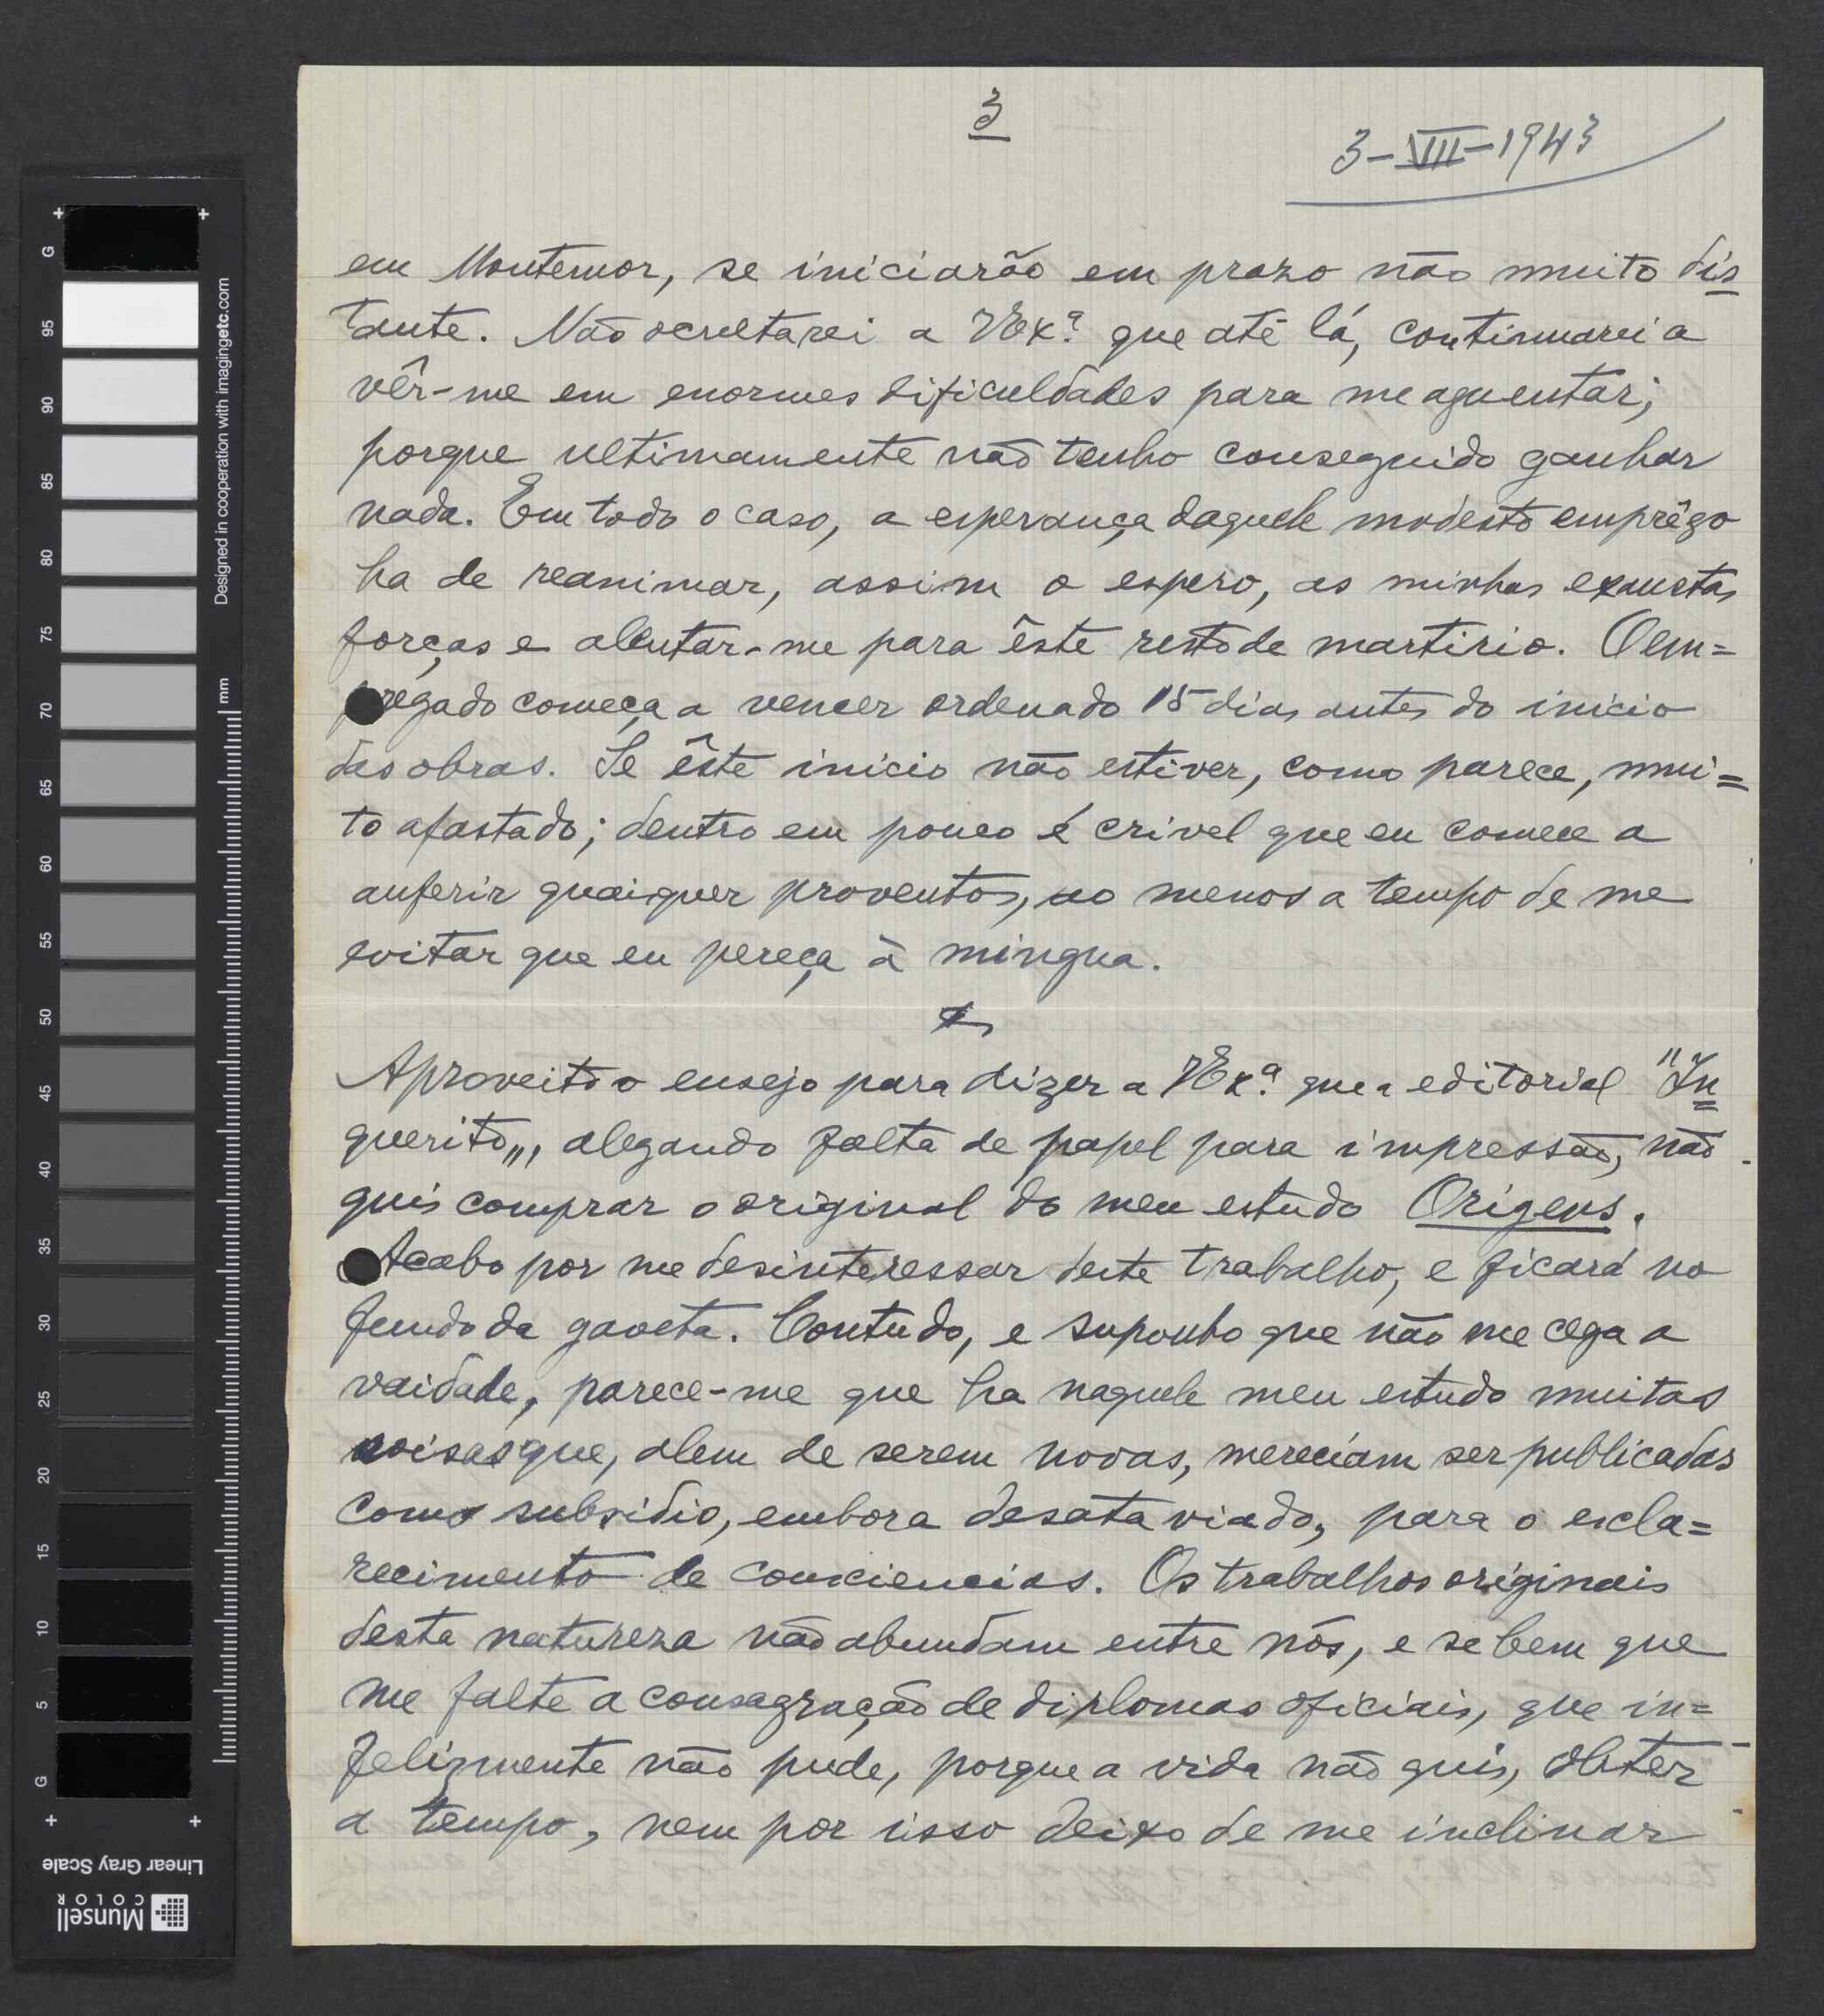 3
3-VII-1943
em Montemor, se iniciarão em prazo não muito dis
tante. Não ocultarei a VEx.ª que até lá, continuarei a
vêr-me em enormes dificuldades para me aguentar;
porque ultimamente não tenho conseguido ganhar
nada. Em todo o caso, a esperança daquele modesto emprêgo
ha de reanimar, assim o espero, as minhas exaustas
forças e alentar-me para êste resto de martirio. O em=
pregado começa a vencer ordenado 15 dias antes do inicio
das obras. Se êste inicio não estiver, como parece, mui=
to afastado; dentro em pouco é crivel que eu comece a
auferir quaiquer proventos, ao menos a tempo de me
evitar que eu pereça à mingua.
Aproveito o ensejo para dizer a VEx.ª que a editorial "In
querito„, alegando falta de papel para impressão, não
quis comprar o original do meu estudo Origens.
Acabo por me desinteressar deste trabalho, e ficará no
fundo da gaveta. Contudo, e suponho que não me cega a
vaidade, parece-me que ha naquele meu estudo muitas
coisas que, alem de serem novas, mereciam ser publicadas
como subsidio, embora desataviado, para o escla=
recimento de consciencias. Os trabalhos originais
desta natureza não abundam entre nós, e se bem que
me falte a consagração de diplomas oficiais, que in=
felizmente não pude, porque a vida não quis, obter
a tempo, nem por isso deixo de me inclinar
G
95
90
85
80
75
70
65
60
55
50
45
40
35
30
25
20
15
10
5
G
mm
Designed in cooperation with imagingetc.com
Linear Gray Scale
Munsell
COLOR